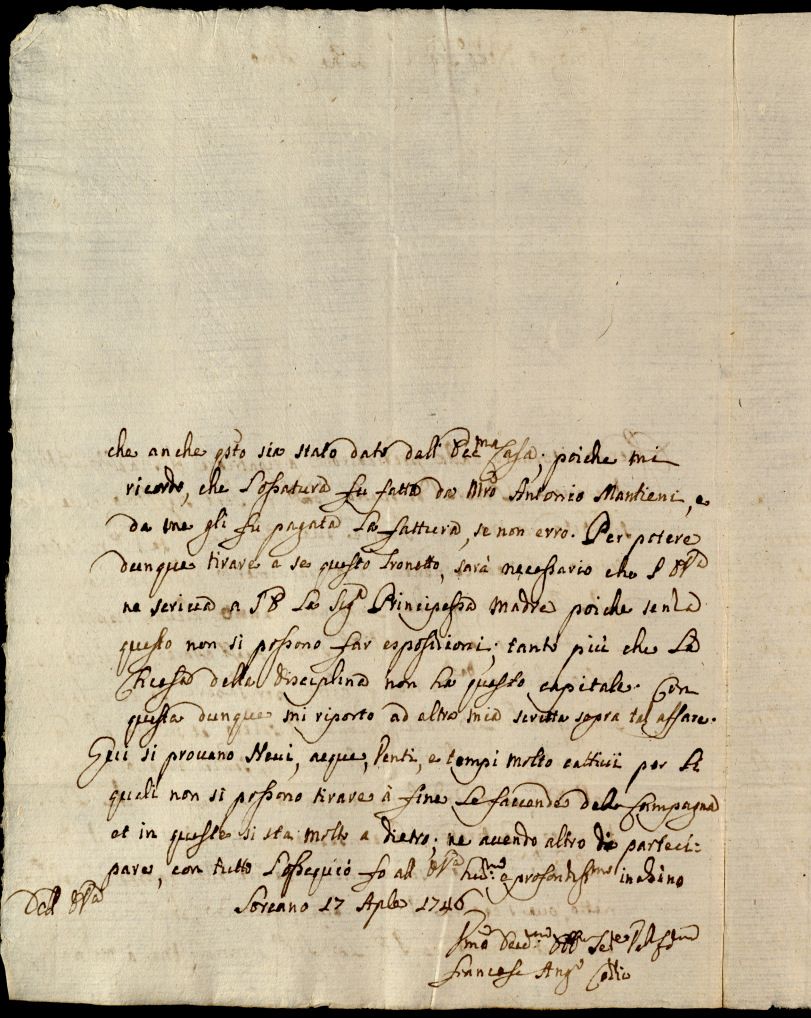 che anche qsto sia stato dato dall' Ecc.ma Casa; poiche mi
ricordo, che l'ossatura fu fatta da Mro Antonio Mantieni, e
da me gli fu pagata la fattura, se non erro. Per potere
dunque tirare a se questo Tronetto, sarà necessario che
ne scriva a la Sig.a Principessa Madre poiche senza
questo non si possono far esposizioni; tanto più che la
Chiesa della disciplina non ha questo capitale. Con
questa dunque mi riporto ad altra mia scritta sopra tal affare.
Qui si provano Nevi, acque, Venti, e tempi molto cattivi per li
quali non si possono tirare à fine le faccende della Campagna
et in queste si sta molto a dietro; ne avendo altro di parteci-
pare, con tutto l'ossequio fo all' e profondiss.mo inchino
Soreano 17 Aple 1746
Dell'
Francesc Ang.o